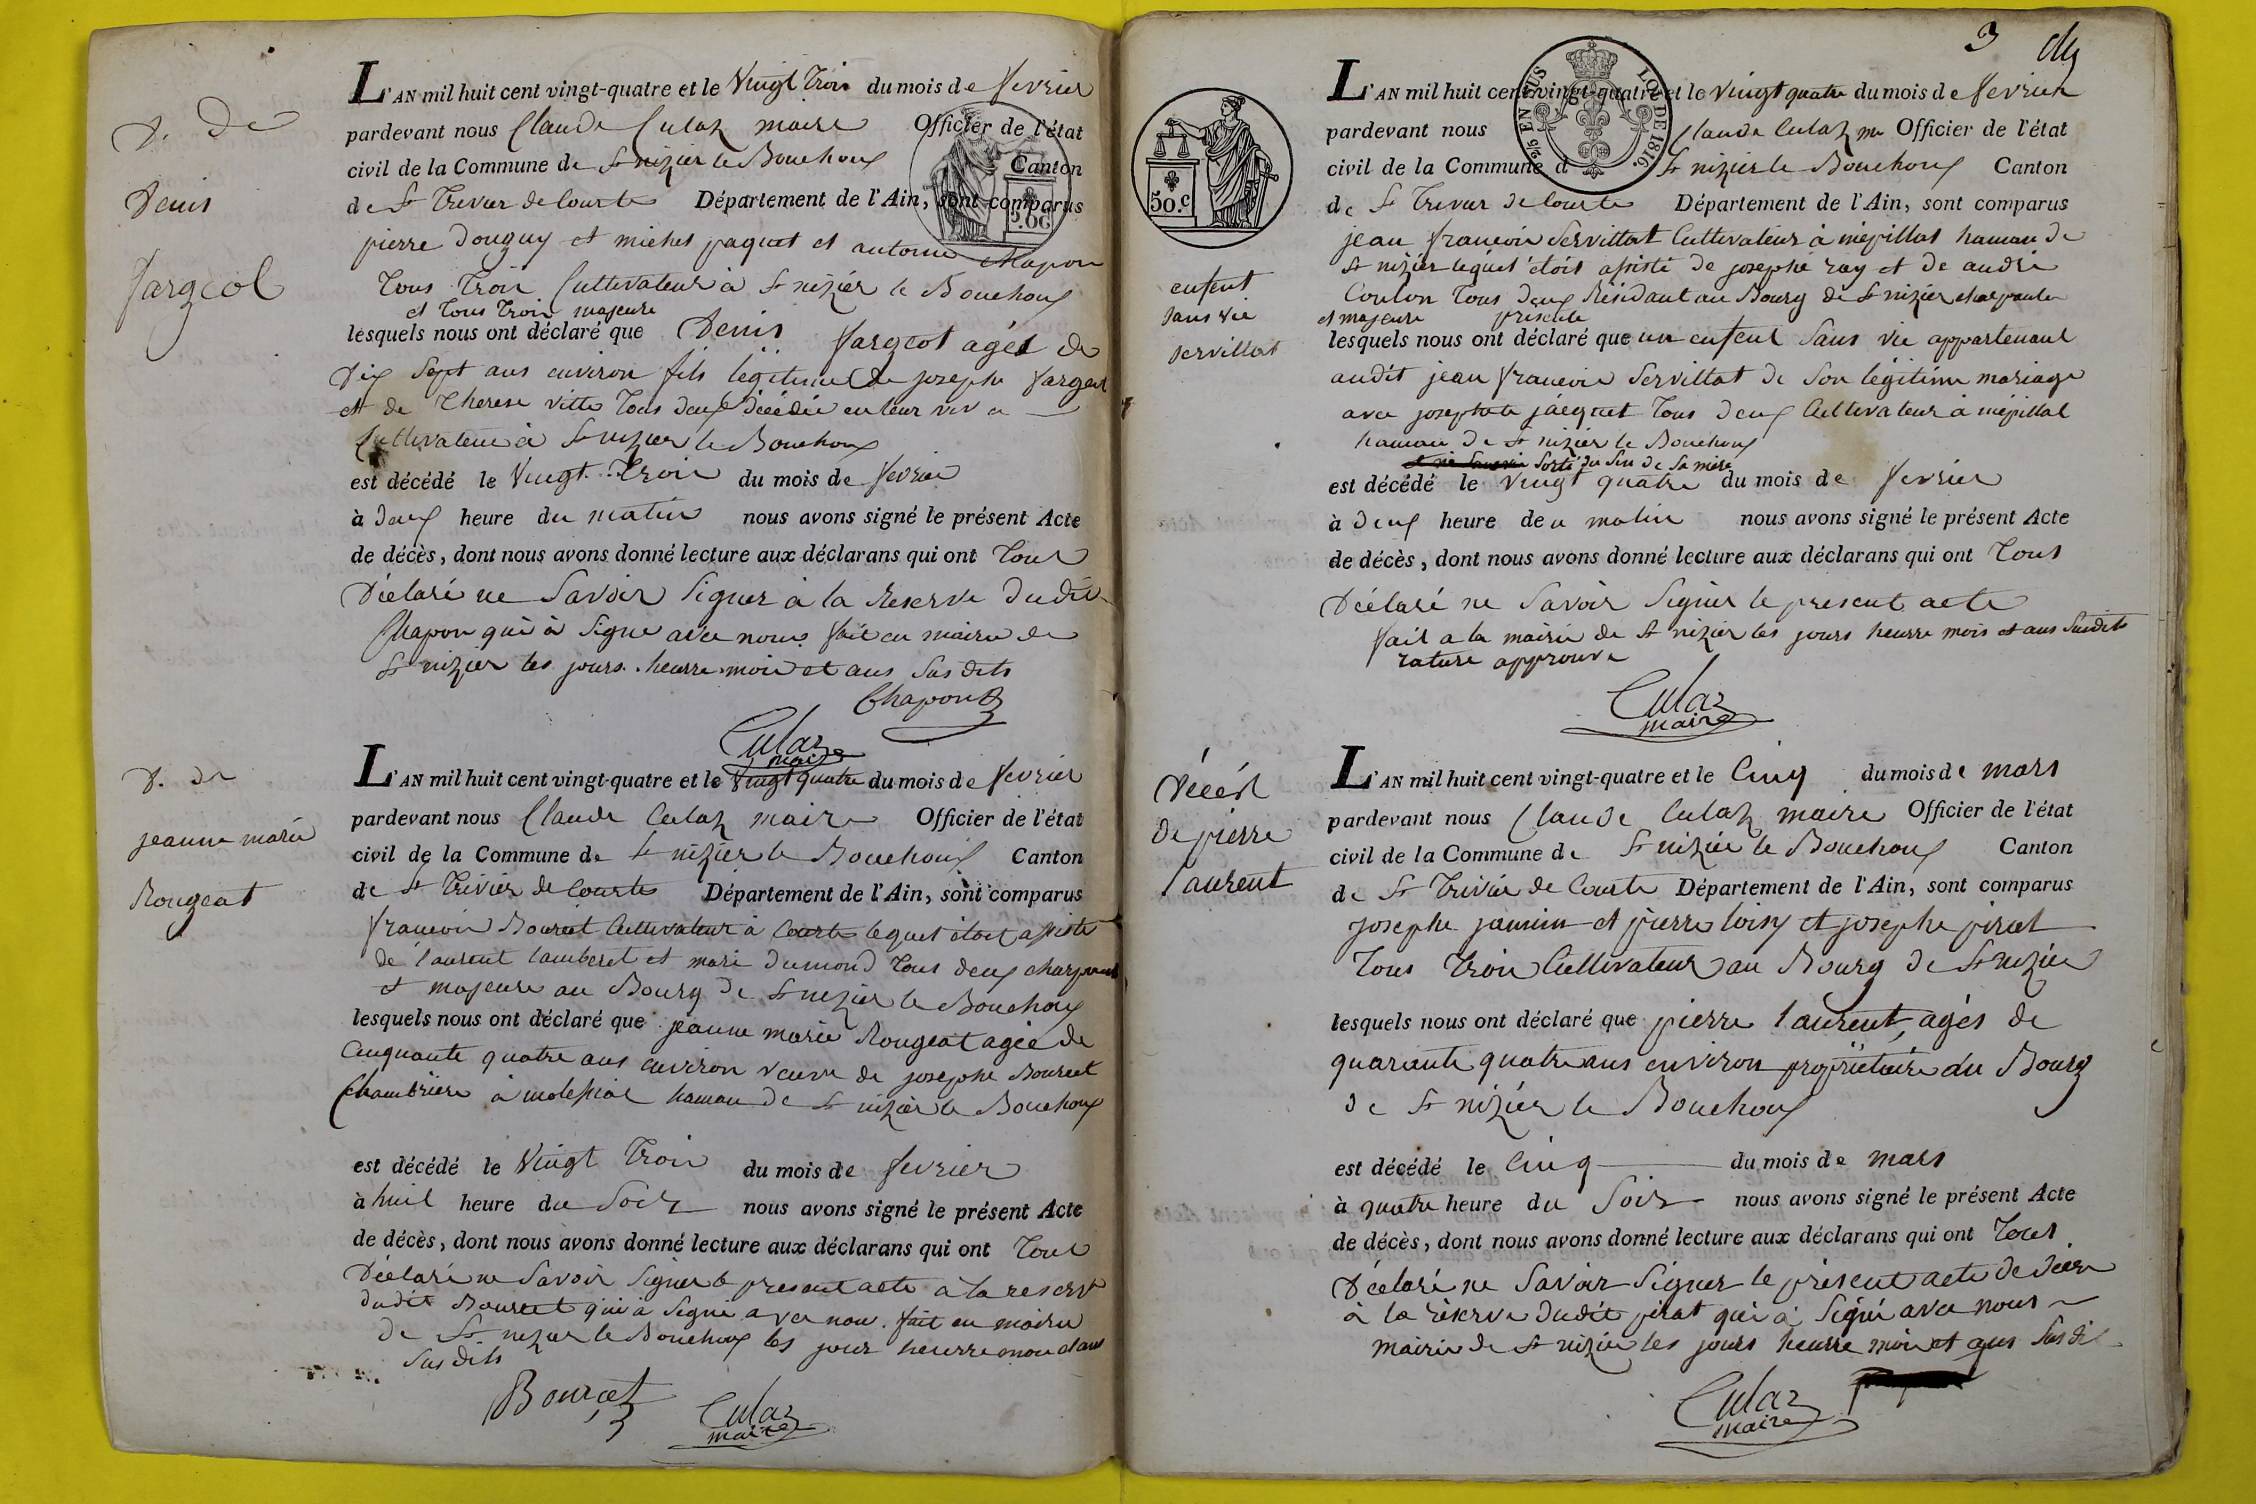 D. de
Denis
Fargeot
L'AN mil huit cent vingt-quatre et le Vingt Trois du mois de fevrier
pardevant nous Claude Culaz maire Officier de l'état
civil de la Commune de St nizier le Bouchoux Canton
de St Trivier de Courte Département de l'Ain, sont comparus
pierre Douguy et michel paquet et antoine Chapon
Tous Trois Cultivateur à St nizier le Bouchoux
et Tous Trois majeure
lesquels nous ont déclaré que Denis fargeot agés de
Dix Sept ans environ fils légitime de josephe fargeot
et de Therese vitte Tous deux décédée en leur viv
Cultivateur à St nizier le Bouchoux
est décédé le Vingt Trois du mois de fevrier
à deux heure du matin nous avons signé le présent Acte
de décès, dont nous avons donné lecture aux déclarans qui ont Tous
Déclaré ne Savoir Signer à la Reserve dudit
Chapon qui à Signe avec nous fait en mairie de
St nizier les jours heurre mois et ans Sus dits
Chapon
Culaz
maire
D. de
jeanne marie
Rougeat
L'AN mil huit cent vingt-quatre et le Vingt quatre du mois de fevrier
pardevant nous Claude Culaz maire Officier de l'état
civil de la Commune de St nizier le Bouchoux Canton
de St Trivier de Courte Département de l'Ain, sont comparus
francois Bourcet Cultivateur à Courte lequel étoit assisté
de laurent lamberet et marie dumond Tous deux
et majeure au Bourg de St nizier le Bouchoux
lesquels nous ont déclaré que jeanne marie Rougeat agée de
Cinquante quatre ans environ veuve de josephe Bourcet
Chambrière à molessiat hamau de St nizier le Bouchoux
est décédé le Vingt Trois du mois de fevrier
à huit heure du Soir nous avons signé le présent Acte
de décès, dont nous avons donné lecture aux déclarans qui ont Tous
Déclaré ne Savoir Signer le present acte à la reserve
dudit Bourcet qui à Signé avec nous. fait en mairie
de St nizier le Bouchoux les jour heurre mois et ans
Sus dits
Bourcet
Culaz
maire
3
2/5 EN SUS
LOI DE 1816.
50.c
enfent
Sans vie
Servillat
L'AN mil huit cent vingt-quatre et le vingt quatre du mois de fevrier
pardevant nous Claude Culaz m Officier de l'état
civil de la Commune d St nizier le Bouchoux Canton
de St Trivier de Courte Département de l'Ain, sont comparus
jean francois Servillat Cultivateur à mépillat hamau de
St nizier lequel étoit assisté de josephe ray et de andré
Coulon Tous deux Résidant au Bourg de St nizier
et majeure présenté
lesquels nous ont déclaré que un enfent Sans vie appartenant
audit jean francois Servillat de Son légitime mariage
avec josephete jacquet Tous deux Cultivateur à mépillat
hamau de St nizier le Bouchoux
Sorti du Sin de Sa mère
est décédé le vingt quatre du mois de fevrier
à deux heure deu matin nous avons signé le présent Acte
de décès, dont nous avons donné lecture aux déclarans qui ont Tous
Déclaré ne Savoir Signer le present acte
fait a la mairie de St nizier les jours heurre mois et ans Susdits
rature approuve
Culaz
maire
Décés
de pierre
laurent
L'AN mil huit cent vingt-quatre et le Cinq du mois de mars
pardevant nous Claude Culaz maire Officier de l'état
civil de la Commune de St nizier le Bouchoux Canton
de St Trivier de Courte Département de l'Ain, sont comparus
josephe jannin et pierre loisy et josephe pirat
Tous Trois Cultivateur au Bourg de St nizier
lesquels nous ont déclaré que pierre laurent, agés de
quarante quatre ans environ propriétaire du Bourg
de St nizier le Bouchoux
est décédé le Cinq du mois de mars
à quatre heure du Soir nous avons signé le présent Acte
de décès, dont nous avons donné lecture aux déclarans qui ont Tous
Déclaré ne Savoir Signer le présent acte de déces
à la réserve dudit pirat qui à Signé avec nous
mairie de St nizier les jours heurre mois et ans Sus dit
Culaz
maire